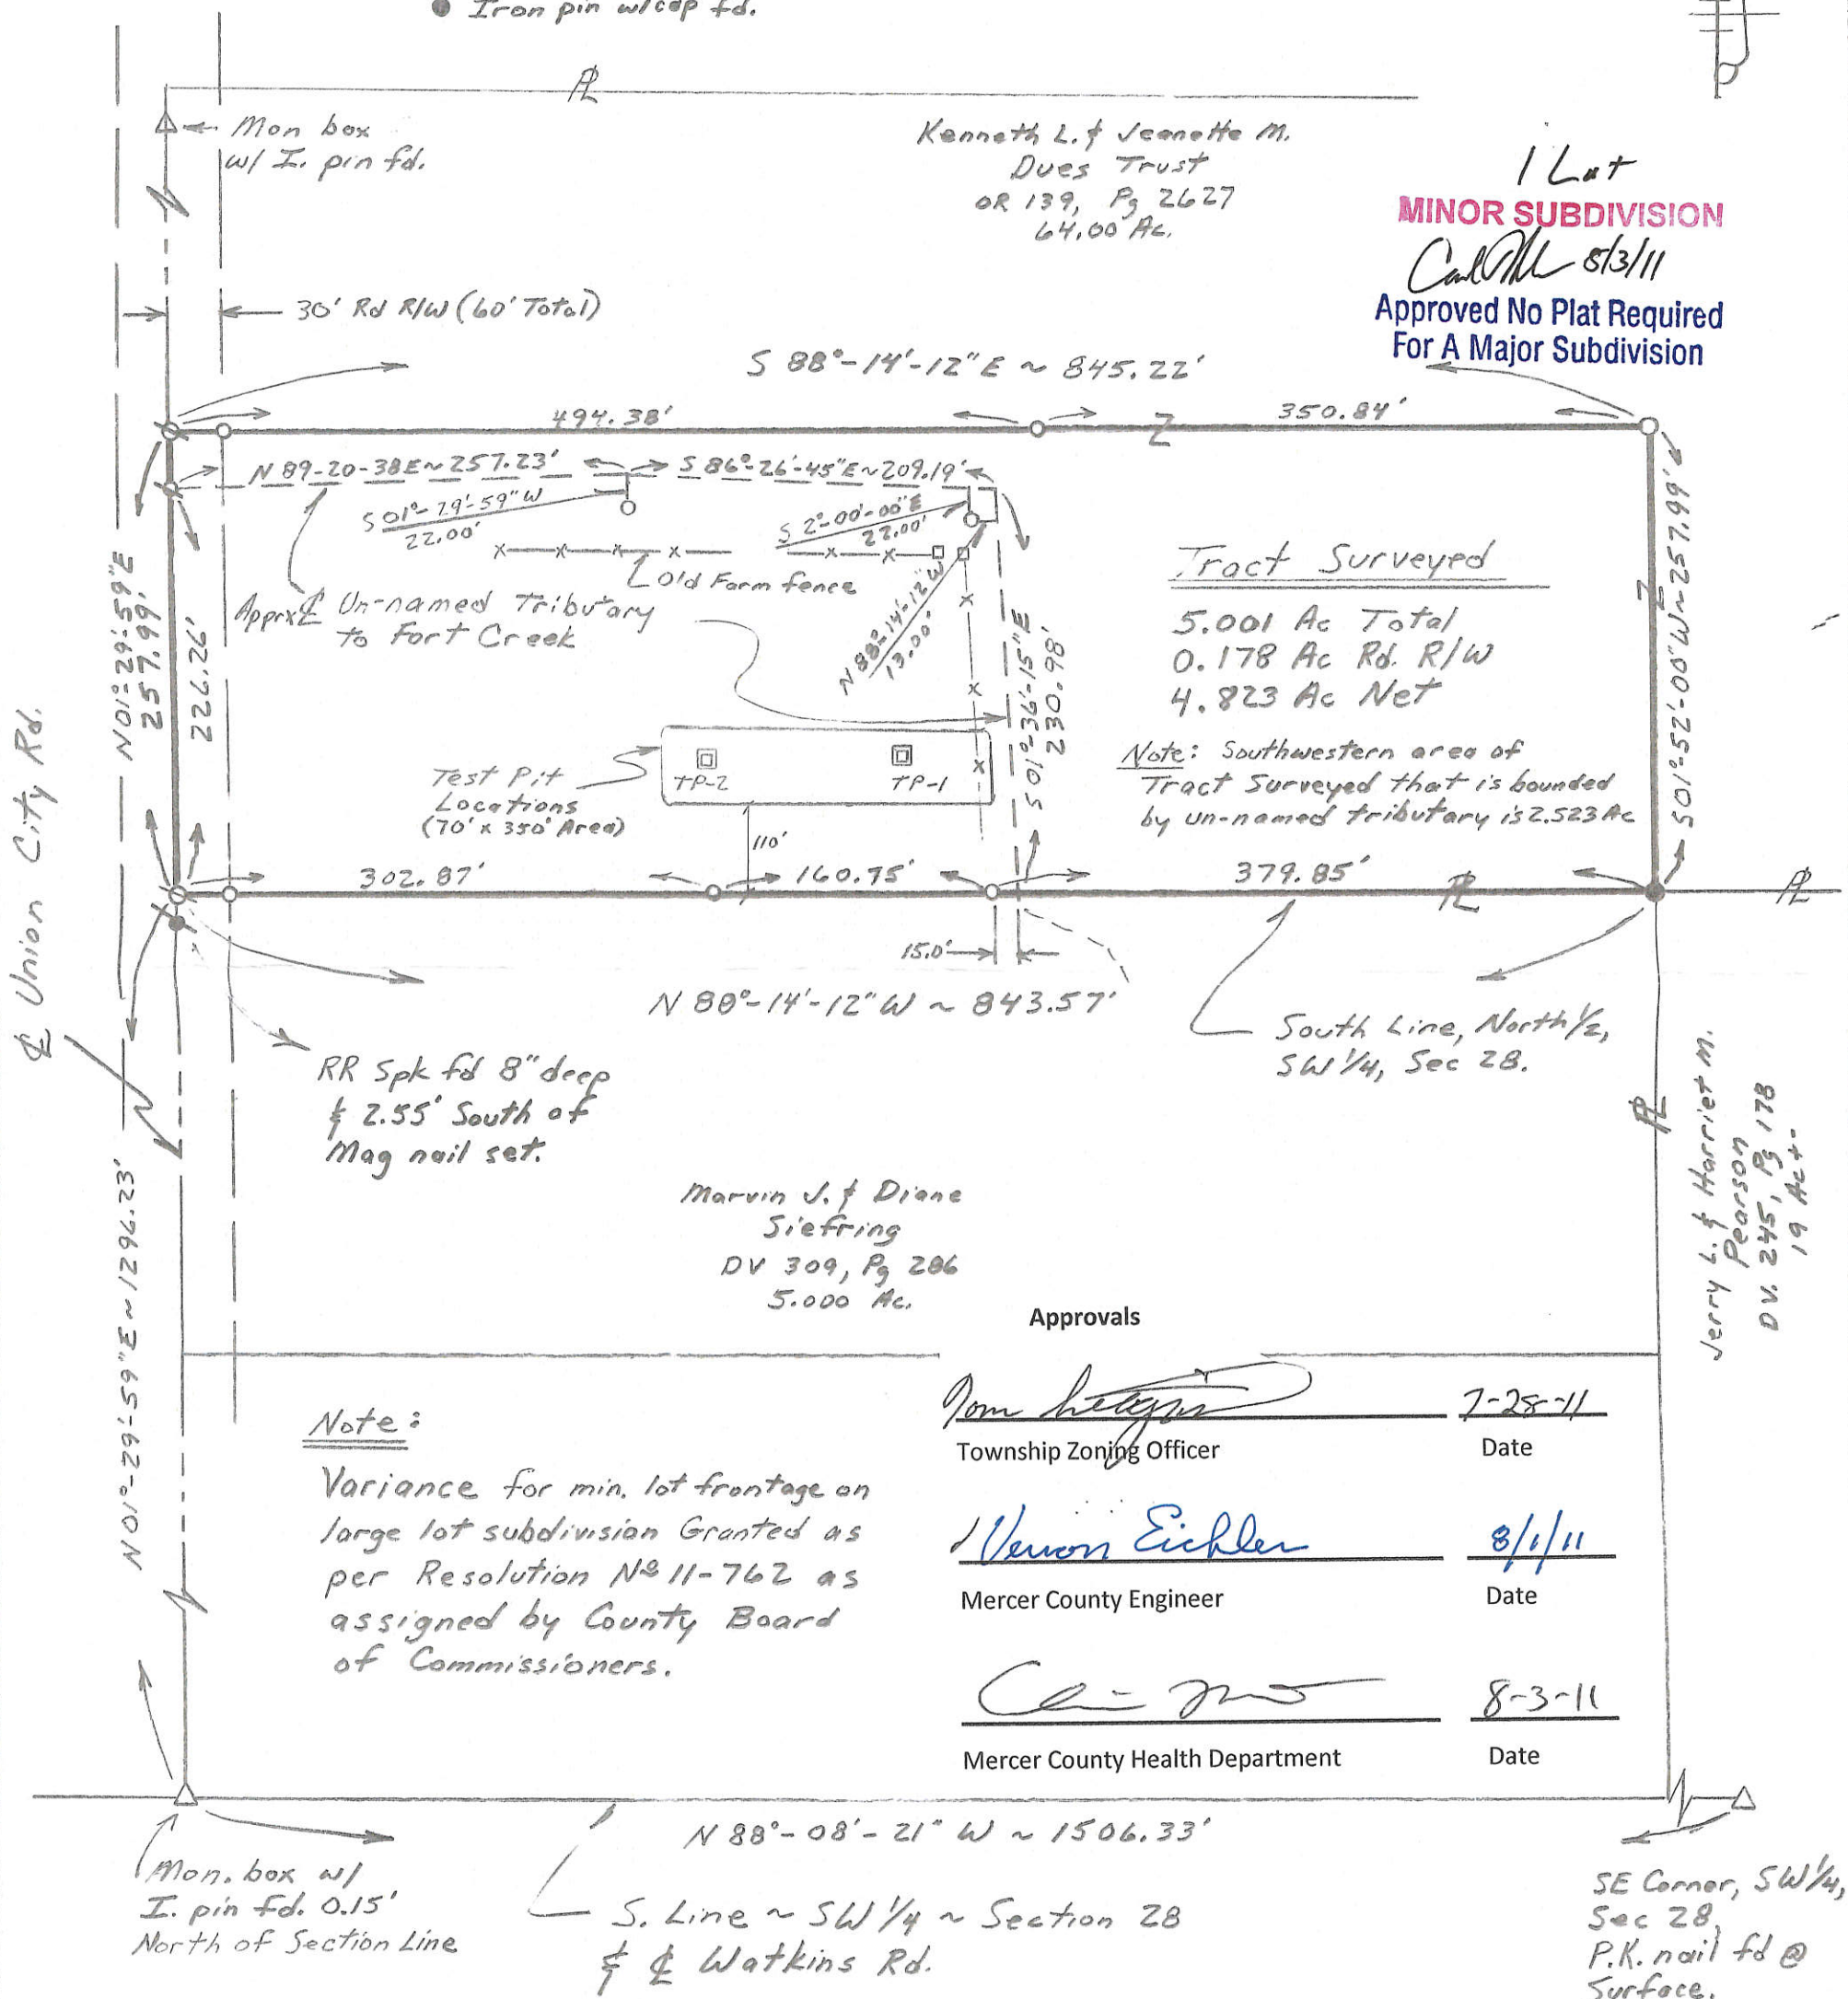 Iron pin w/cap fd.
PL
Mon box
w/ I. pin fd.
Kenneth L. & Jeanette M.
Dues Trust
OR 139, Pg 2627
64.00 Ac.
1 Lot
MINOR SUBDIVISION
8/3/11
Approved No Plat Required
For A Major Subdivision
30' Rd R/W (60' Total)
S 88°-14'-12" E ~ 845.22'
494.38'
350.84'
N 89-20-38E ~ 257.23'
S 86°-26'-45"E ~ 209.19'
S 01°-29'-59" W
22.00'
S 2°-00'-00" E
22.00'
Old Farm fence
Apprx ℄ Un-named Tributary
to Fort Creek
N 88°-14'-12" W
13.00'
S 01°-36'-15" E
230.98'
Tract Surveyed
5.001 Ac Total
0.178 Ac Rd. R/W
4.823 Ac Net
Note: Southwestern area of
Tract Surveyed that is bounded
by un-named tributary is 2.523 Ac
S 01°-52'-00" W ~ 257.99'
N 01°-29'-59" E
257.99'
226.26'
℄ Union City Rd.
Test Pit
Locations
(70' x 350' Area)
TP-2
TP-1
110'
302.87'
160.75'
379.85'
PL
PL
15.0'
N 88°-14'-12" W ~ 843.57'
South Line, North 1/2,
SW 1/4, Sec 28.
RR Spk fd 8" deep
& 2.55' South of
Mag nail set.
PL
Jerry L. & Harriet M.
Pearson
DV. 245, Pg 178
19 Ac+-
Marvin J. & Diane
Siefring
DV 309, Pg 286
5.000 Ac.
N 01°-29'-59" E ~ 1296.23'
Approvals
Tom
7-28-11
Township Zoning Officer
Date
Vernon Eichler
8/1/11
Mercer County Engineer
Date
8-3-11
Mercer County Health Department
Date
Note:
Variance for min. lot frontage on
large lot subdivision Granted as
per Resolution No 11-762 as
assigned by County Board
of Commissioners.
N 88°-08'-21" W ~ 1506.33'
Mon. box w/
I. pin fd. 0.15'
North of Section Line
S. Line ~ SW 1/4 ~ Section 28
& ℄ Watkins Rd.
SE Corner, SW 1/4,
Sec 28,
P.K. nail fd @
Surface.